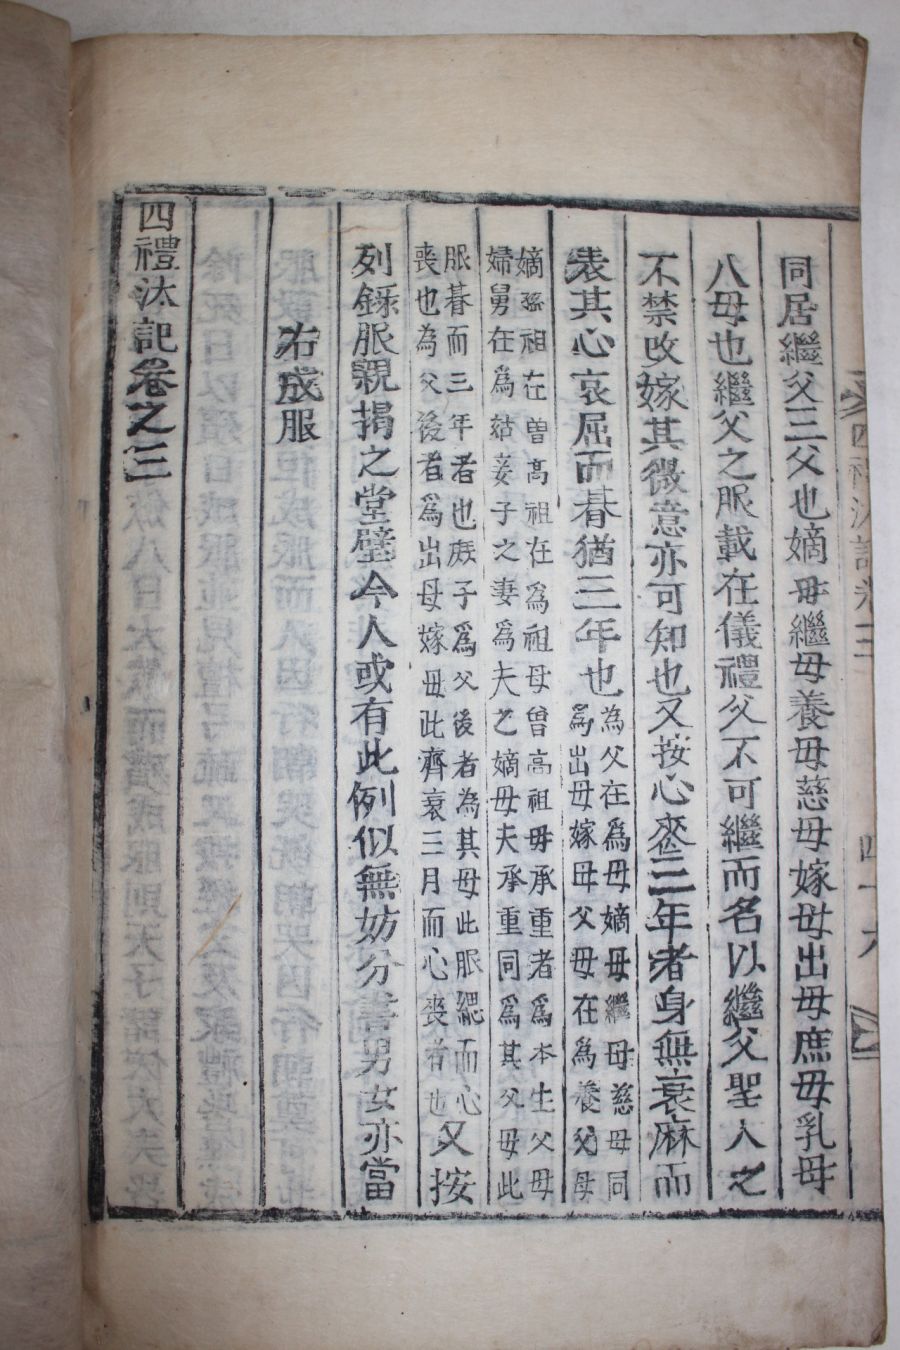 同居繼父三父也嫡母繼母養母慈母嫁母出母庶母乳母
八母也繼父之服載在儀禮父不可繼而名以繼父聖人之
不禁改嫁其微意亦可知也又按心喪三年者身無衰麻而
表其心哀屈而朞猶三年也
爲父在爲母嫡母繼母慈母同
爲出母嫁母父母在爲養父母
嫡孫祖在曾高祖在爲祖母曾高祖母承重者爲本生父母
婦舅在爲姑妾子之妻爲夫之嫡母夫承重同爲其父母此
服朞而三年者也庶子爲父後者為其母此服緦而心
喪也為父後者爲出母嫁母此齊衰三月而心喪者也
又按
列錄服親揭之堂壁今人或有此例似無妨分書男女亦當
右成服
四禮汰記卷之三
四禮汰記卷三
四十六